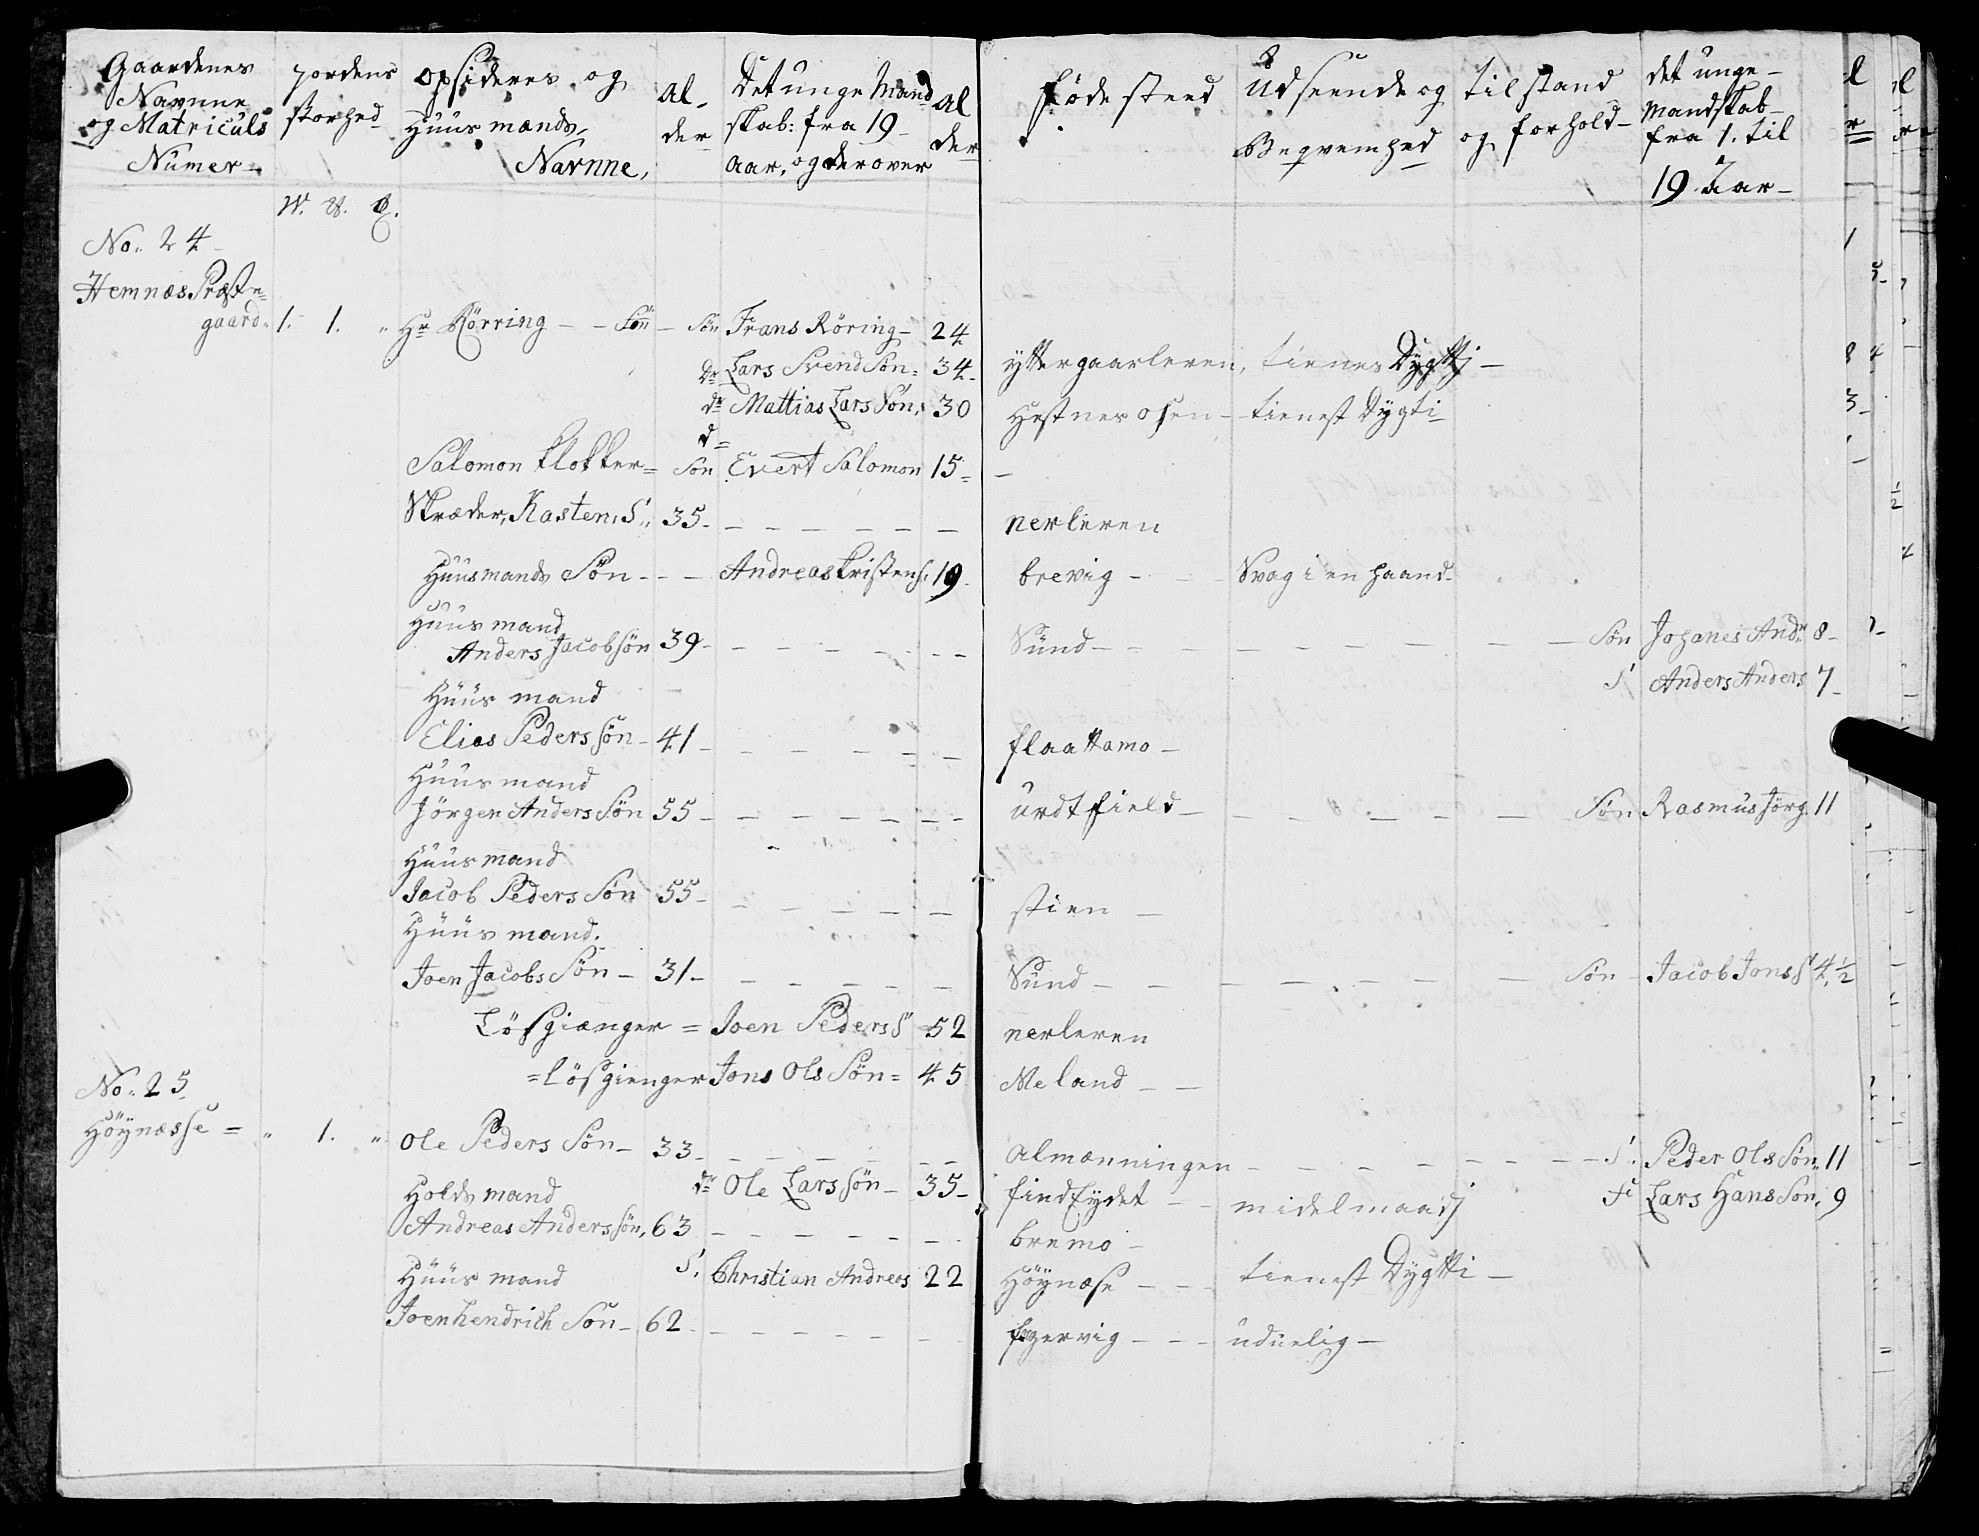 Gaardenes Navnne og Matriculs Numer
jordens storhed
opsideres og Huusmænds, Navnne,
al- der
Det unge Mand skab: fra 19 aar, og derover
al der
fødesteed
Udseende og Beqvemhed
tilstand og forhold
det unge Mandskab fra 1. til 19 Aar
W. V.
No. 24
Hemnæs Præste-
gaard 1. 1. " Hr Rörring - - Sön - Sön Frans Röring - 24
Dr Lars Svend Sön = 34 yttergaarleren, tienes Dygttj
dr Mattias Lars Sön, 30 Hestnesosen - tienest Dygti
d=
Salomon klokker = Sön Evert Salomon 15 =
Skræder, Kasten, S. 35 nerleren
Huusmands Sön - - - Andreas kristens. 19 brevig - Svag i en haand
Huusmand
Anders Jacobsön 39 Sund - Sön Johanes And 8
S Anders Anders 7
Huusmand
Elias Peders sön - 41 flaattamo -
Huusmand
Jörgen Anders Sön 55 urdtfield - Sön Rasmus Jörg. 11
Huusmand
Jacob Peders Sön 55 stien -
Huusmand.
Joen Jacobs Sön - 31 Sund - Sön - Jacob Jons S 4 1/2
Lösgiænger = Joen Peders S 52 nerleren
No. 25 = lösgienger Jons Ols Sön = 45 Meland
Höynæsse = " 1. " Ole Peders Sön - 33 almænningen - S. Peder Ols Sön 11
Holdsmand dr Ole Lars sön - 35 midelmaadj Lars Hans Sön, 9
Andreas Anders sön, 63 bremo -
Huusmand S. Christian Andreas 22 Höynæse - tienest Dygtti
Joen hendrich Sön - 62 uduelig